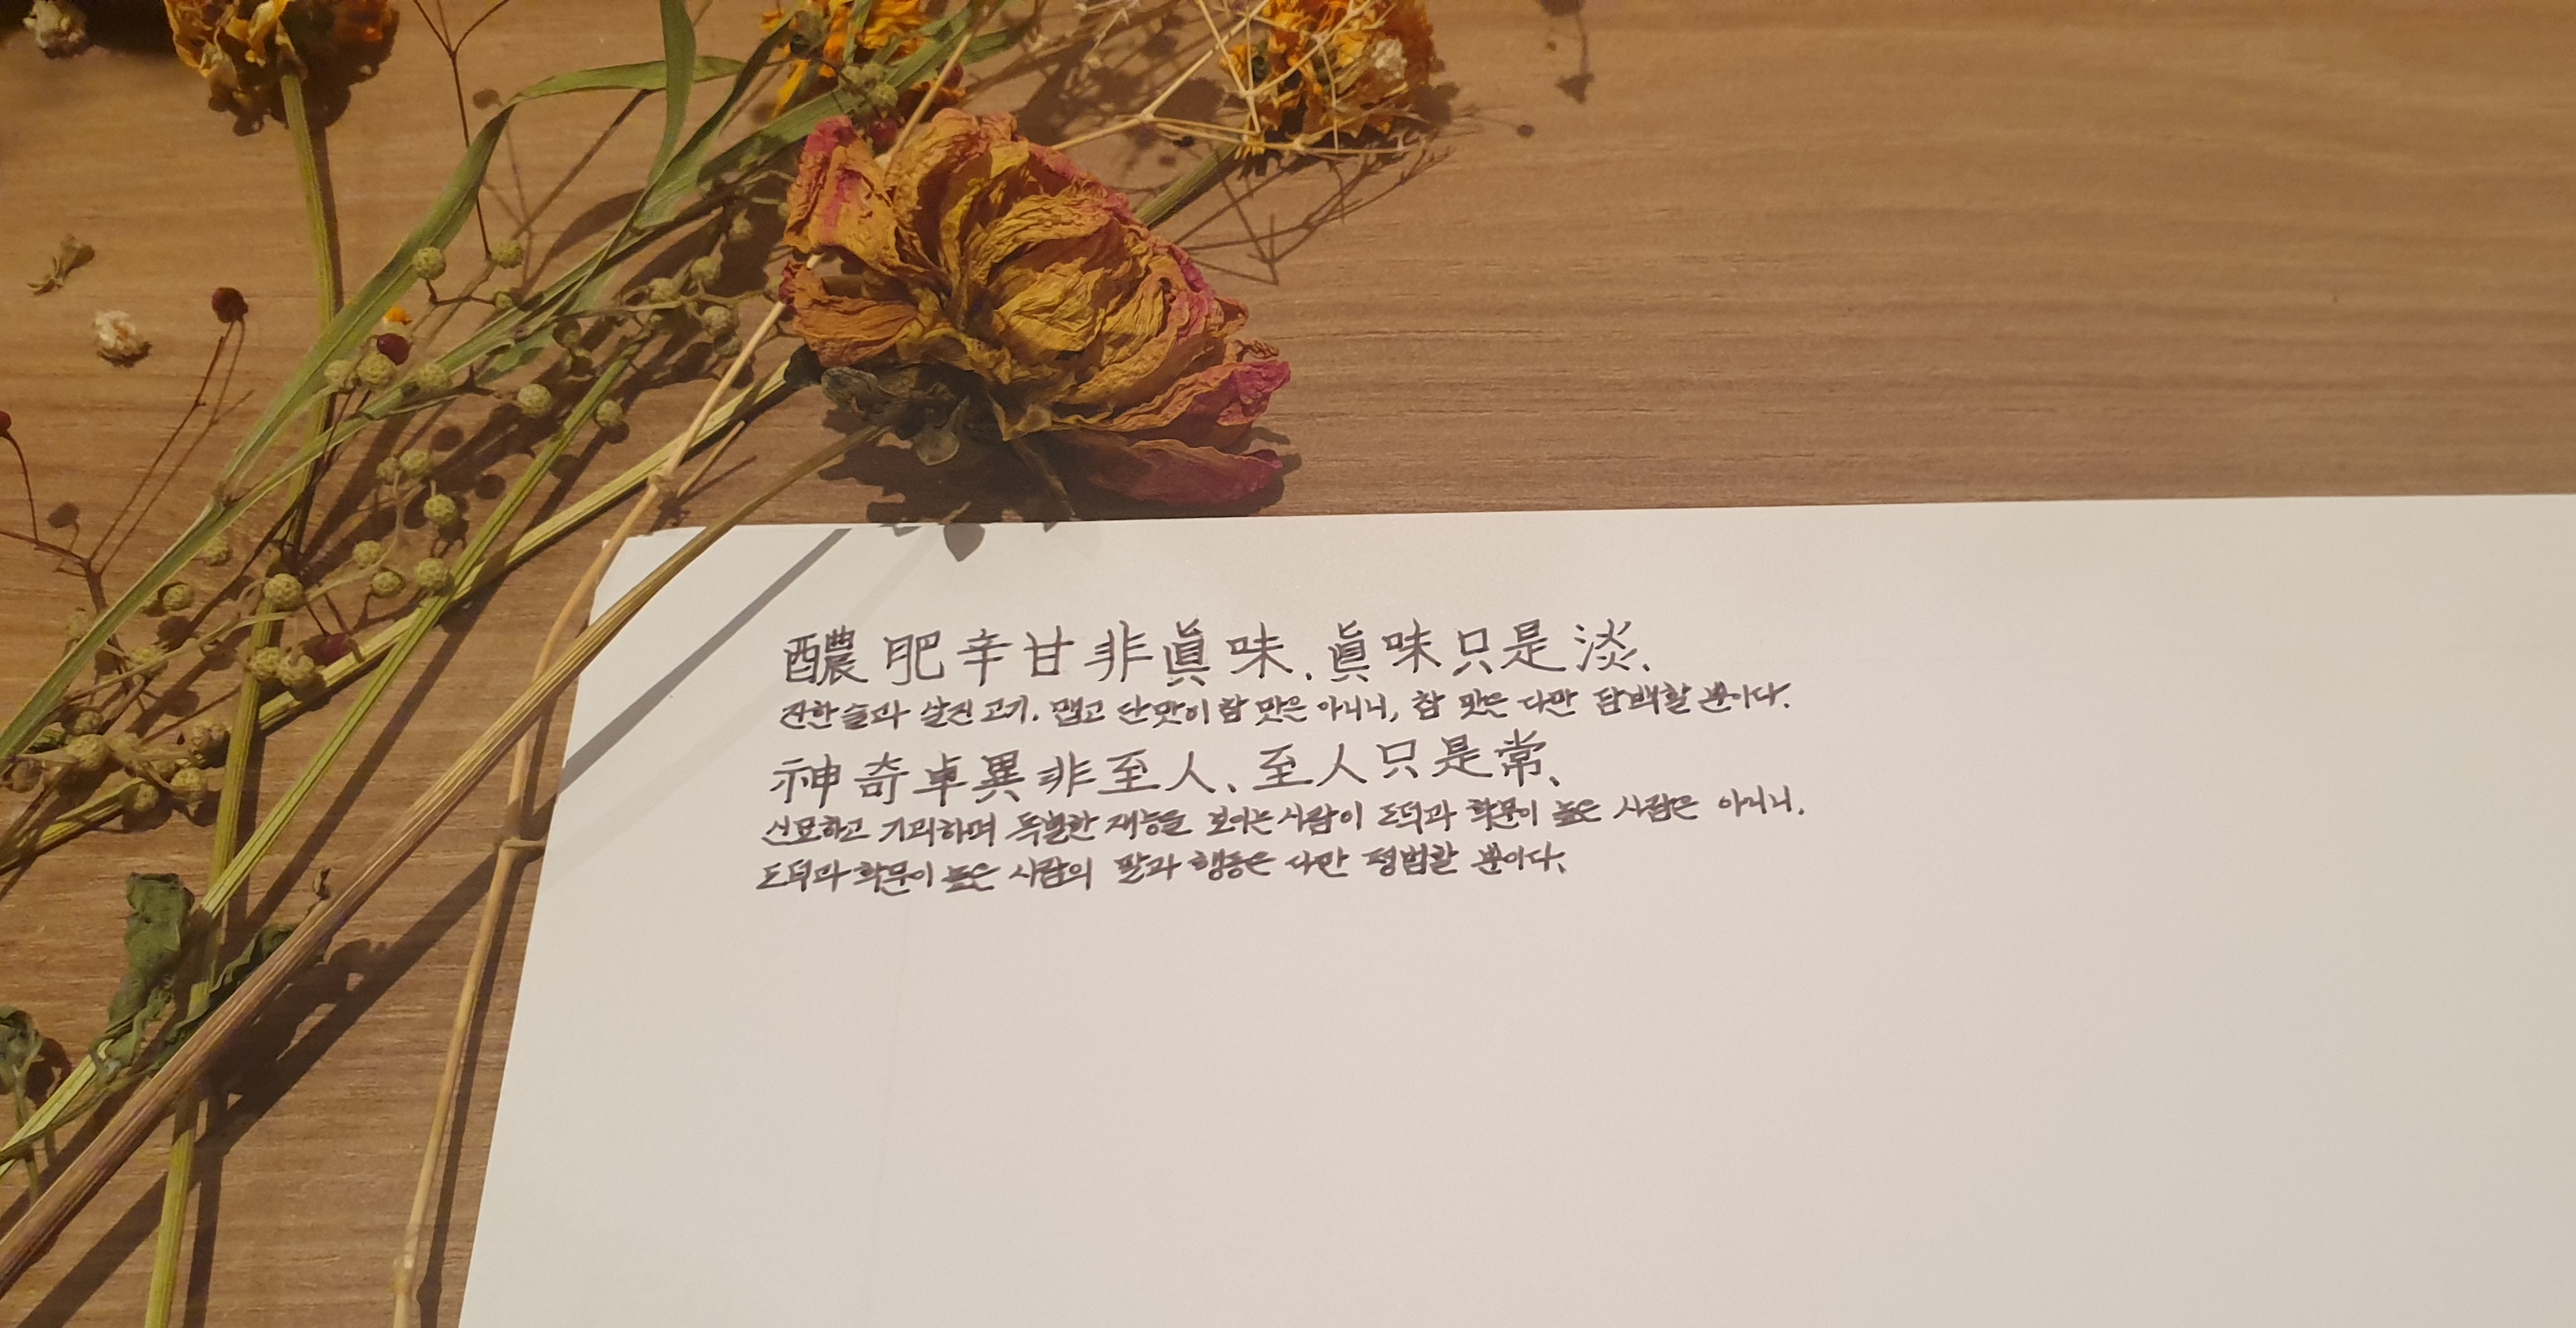 醲肥辛甘非眞味、眞味只是淡、
진한 술과 살진 고기, 맵고 단맛이 참 맛은 아니니, 참 맛은 다만 담백할 뿐이다.
神奇卓異非至人、至人只是常、
신묘하고 기괴하며 독별한 재능을 보이는 사람이 도덕과 학문이 높은 사람은 아니니.
도덕과 학문이 높은 사람의 말과 행동은 다만 평범할 뿐이다.